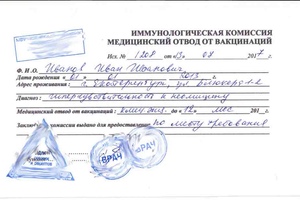 ИММУНОЛОГИЧЕСКАЯ КОМИССИЯ
МЕДИЦИНСКИЙ ОТВОД ОТ ВАКЦИНАЦИЙ
Исх. № 1208 от «13» 07 2017 г.
Ф. И. О. Иванов Иван Иванович
Дата рождения «01» 01 2013 г.
Адрес проживания: г. Екатеринбург, ул. Блюхера
Диагноз: гиперчувствительность к неомицину
Медицинский отвод от вакцинаций: до «12» мес 201 г.
Заключение комиссии выдано для предоставления: по месту требования
ВРАЧ
ВРАЧ